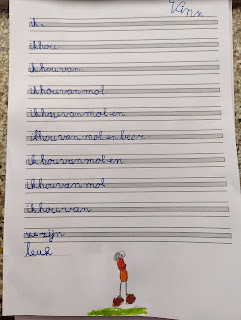 ik.
ik hou.
ik hou van.
ik hou van mol
ik hou van mol en
ik hou van mol en beer.
ik hou van mol en
ik hou van mol
ik hou van
ze zijn
leuk